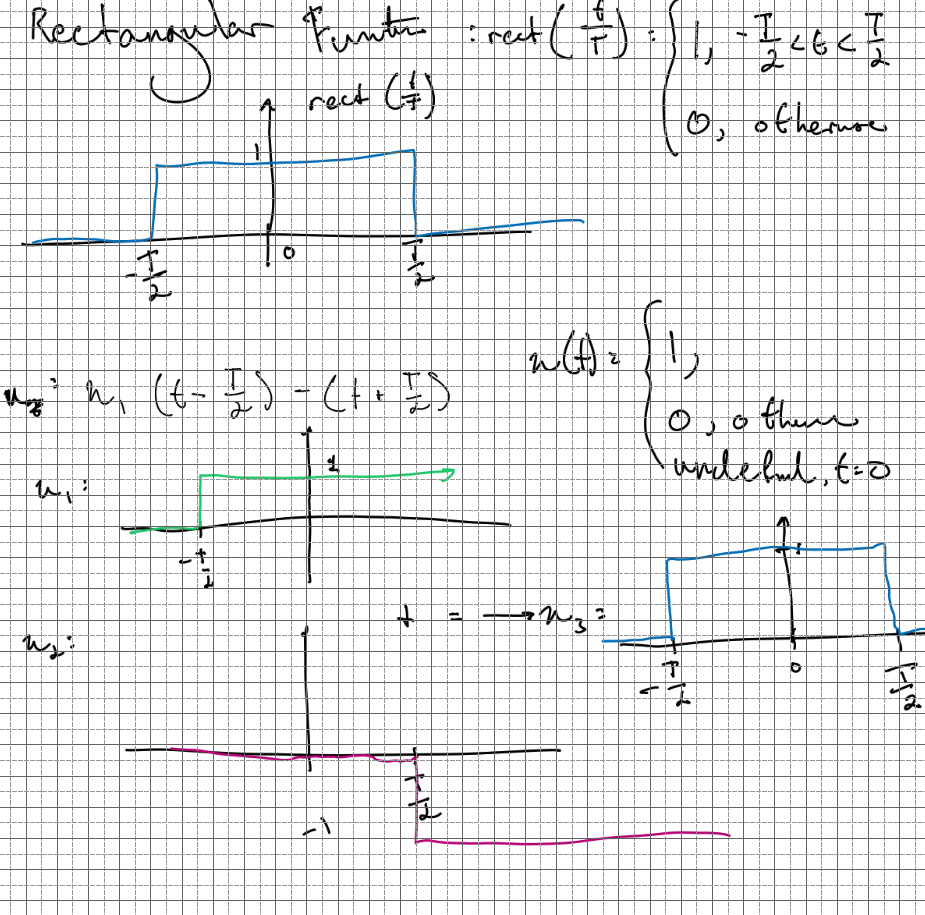 Rectangular Function : rect (t/T) = { 1, -T/2 < t < T/2
0, otherwise
rect (t/T)
1
0
-T/2
T/2
u(t) = { 1,
0, otherwise
undefined, t=0
u₁ (t - T/2) - (t + T/2)
u₁:
1
-T/2
u₂:
-1
T/2
+ = → u₃ =
1
-T/2
0
T/2